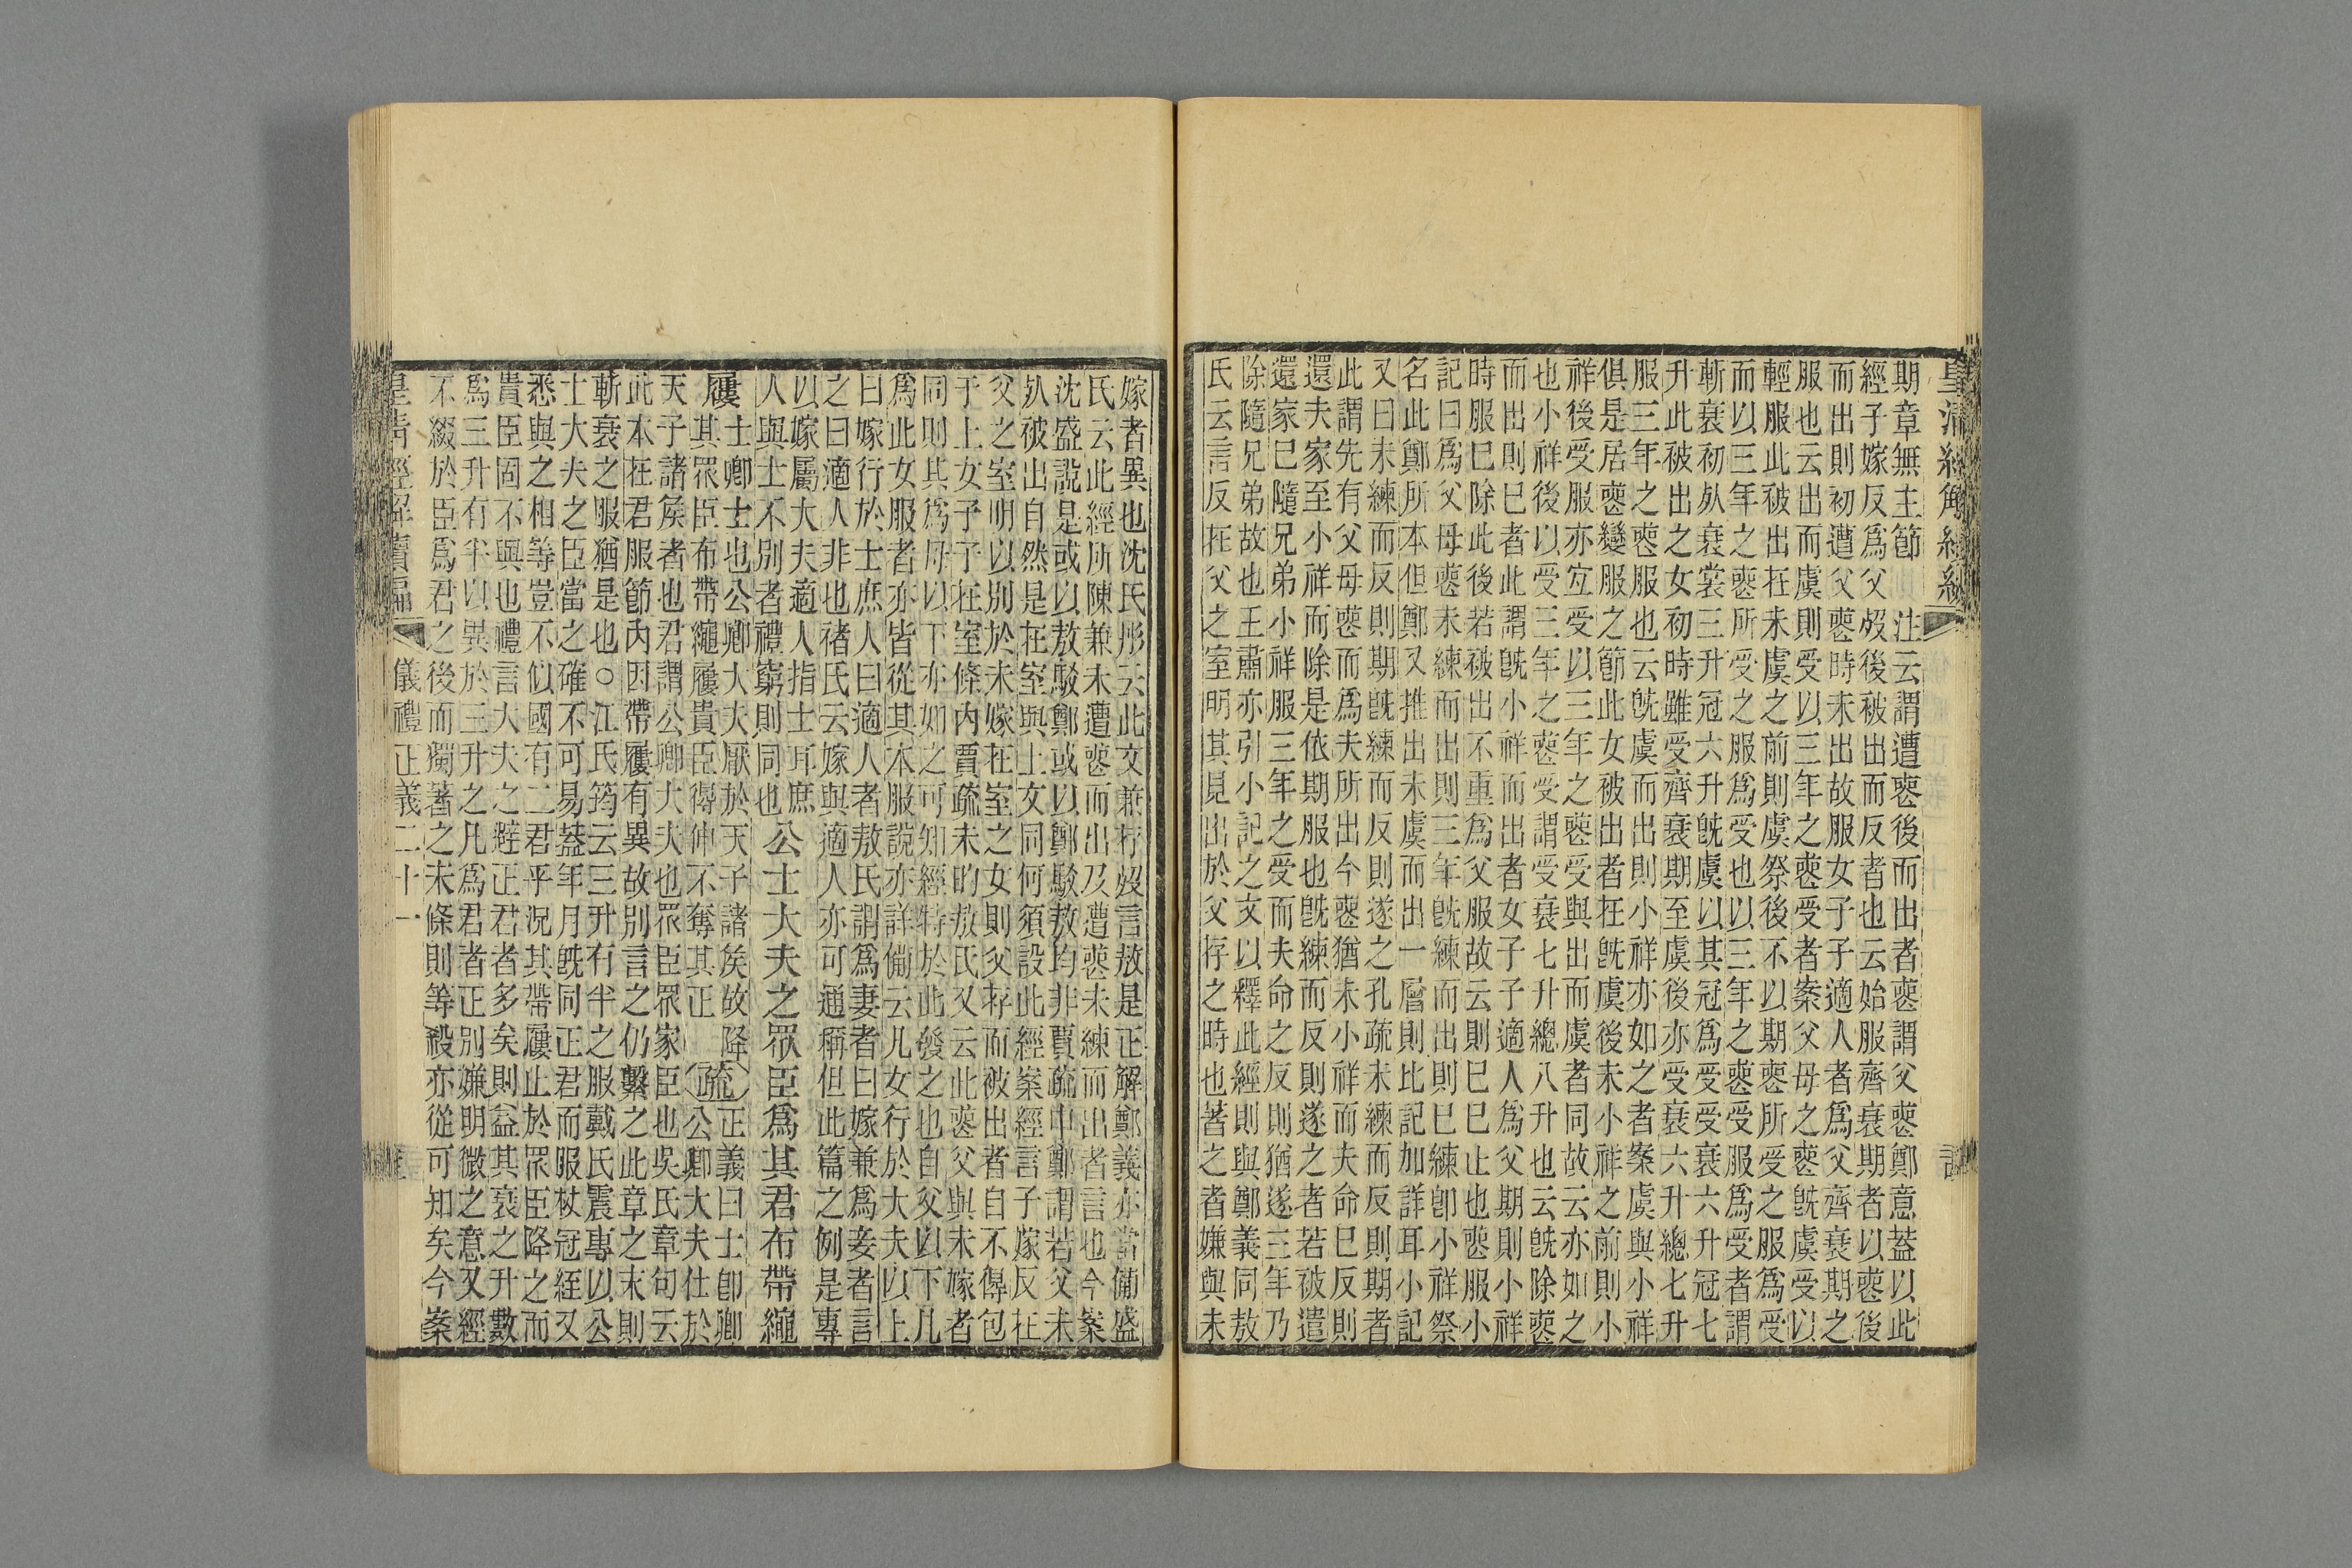 期章無主節　注云謂遭喪後而出者喪謂父喪鄭意蓋以此
經子嫁反爲父㱕後被出而反者也云始服齊衰期者以喪後
而出則初遭父喪時未出故服女子子適人者爲父齊衰期之
服也云出而虞則受以三年之喪受者案父母之喪旣虞受以
輕服此被出在未虞之前則虞祭後不以期喪所受之服爲受
而以三年之喪所受之服爲受也以三年之喪受服爲受者謂
斬衰初䏌衰裳三升冠六升旣虞以其冠爲受受衰六升冠七
升此被出之女初時雖受齊衰期至虞後亦受衰六升總七升
服三年之喪服也云旣虞而出則小祥亦如之者案虞與小祥
俱是居喪變服之節此女被出者在旣虞後未小祥之前則小
祥後受服亦宐受以三年之喪受與出而虞者同故云亦如之
也小祥後以受三年之喪受謂受衰七升總八升也云旣除喪
而出則已者此謂旣小祥而出者女子子適人爲父期則小祥
時服已除此後若被出不重爲父服故云則已已止也喪服小
記曰爲父母喪未練而出則三年旣練而出則已練卽小祥祭
名此鄭所本但鄭又推出未虞而出一層則比記加詳耳小記
又曰未練而反則期旣練而反則遂之孔疏未練而反則期者
此謂先有父母喪而爲夫所出今喪猶未小祥而夫命已反則
還夫家至小祥而除是依期服也旣練而反則遂之者若被遣
還家已隨兄弟小祥服三年之受而夫命之反則猶遂三年乃
除隨兄弟故也王肅亦引小記之文以釋此經則與鄭義同敖
氏云言反在父之室明其見出於父存之時也著之者嫌與未
嫁者異也沈氏彤云此文兼存㱕言敖是正解鄭義亦當備盛
氏云此經所陳兼未遭喪而出及遭喪未練而出者言也今案
沈盛說是或以敖駮鄭或以鄭駮敖均非賈疏中鄭謂若父未
㱕被出自然是在室與上文同何須設此經案經言子嫁反在
父之室明以別於未嫁在室之女則父存而被出者自不得包
于上女子子在室條內賈疏未昀敖氏又云此喪父與未嫁者
同則其爲母以下亦如之可知經特於此發之也自父以下凡
爲此女服者亦皆從其本服說亦詳備云凡女行於大夫以上
曰嫁行於士庶人曰適人者敖氏謂爲妻者曰嫁兼爲妾者言
之曰適人非也褚氏云嫁與適人亦可通稱但此篇之例是專
以嫁屬大夫適人指士耳庶
人與士不別者禮窮則同也　公士大夫之眾臣爲其君布帶繩
屨　士卿士也公卿大夫厭於天子諸矦故降
其眾臣布帶繩屨貴臣得伸不奪其正　疏　正義曰士卽卿
公卿大夫仕於
天子諸矦者也君謂公卿大夫也眾臣眾家臣也吳氏章句云
此本在君服節內因帶屨有異故別言之仍繫之此章之末則
斬衰之服猶是也○江氏筠云三升有半之服戴氏震專以公
士大夫之臣當之確不可易蓋年月旣同正君而服杖冠絰又
悉與之相等豈不似國有二君乎況其帶屨止於眾臣降之而
貴臣固不與也禮言大夫之辟正君者多矣則益其衰之升數
爲三升有半以異於三升之凡爲君者正別嫌明微之意又經
不綴於臣爲君之後而獨著之未條則等殺亦從可知矣今案
儀禮正義二十一